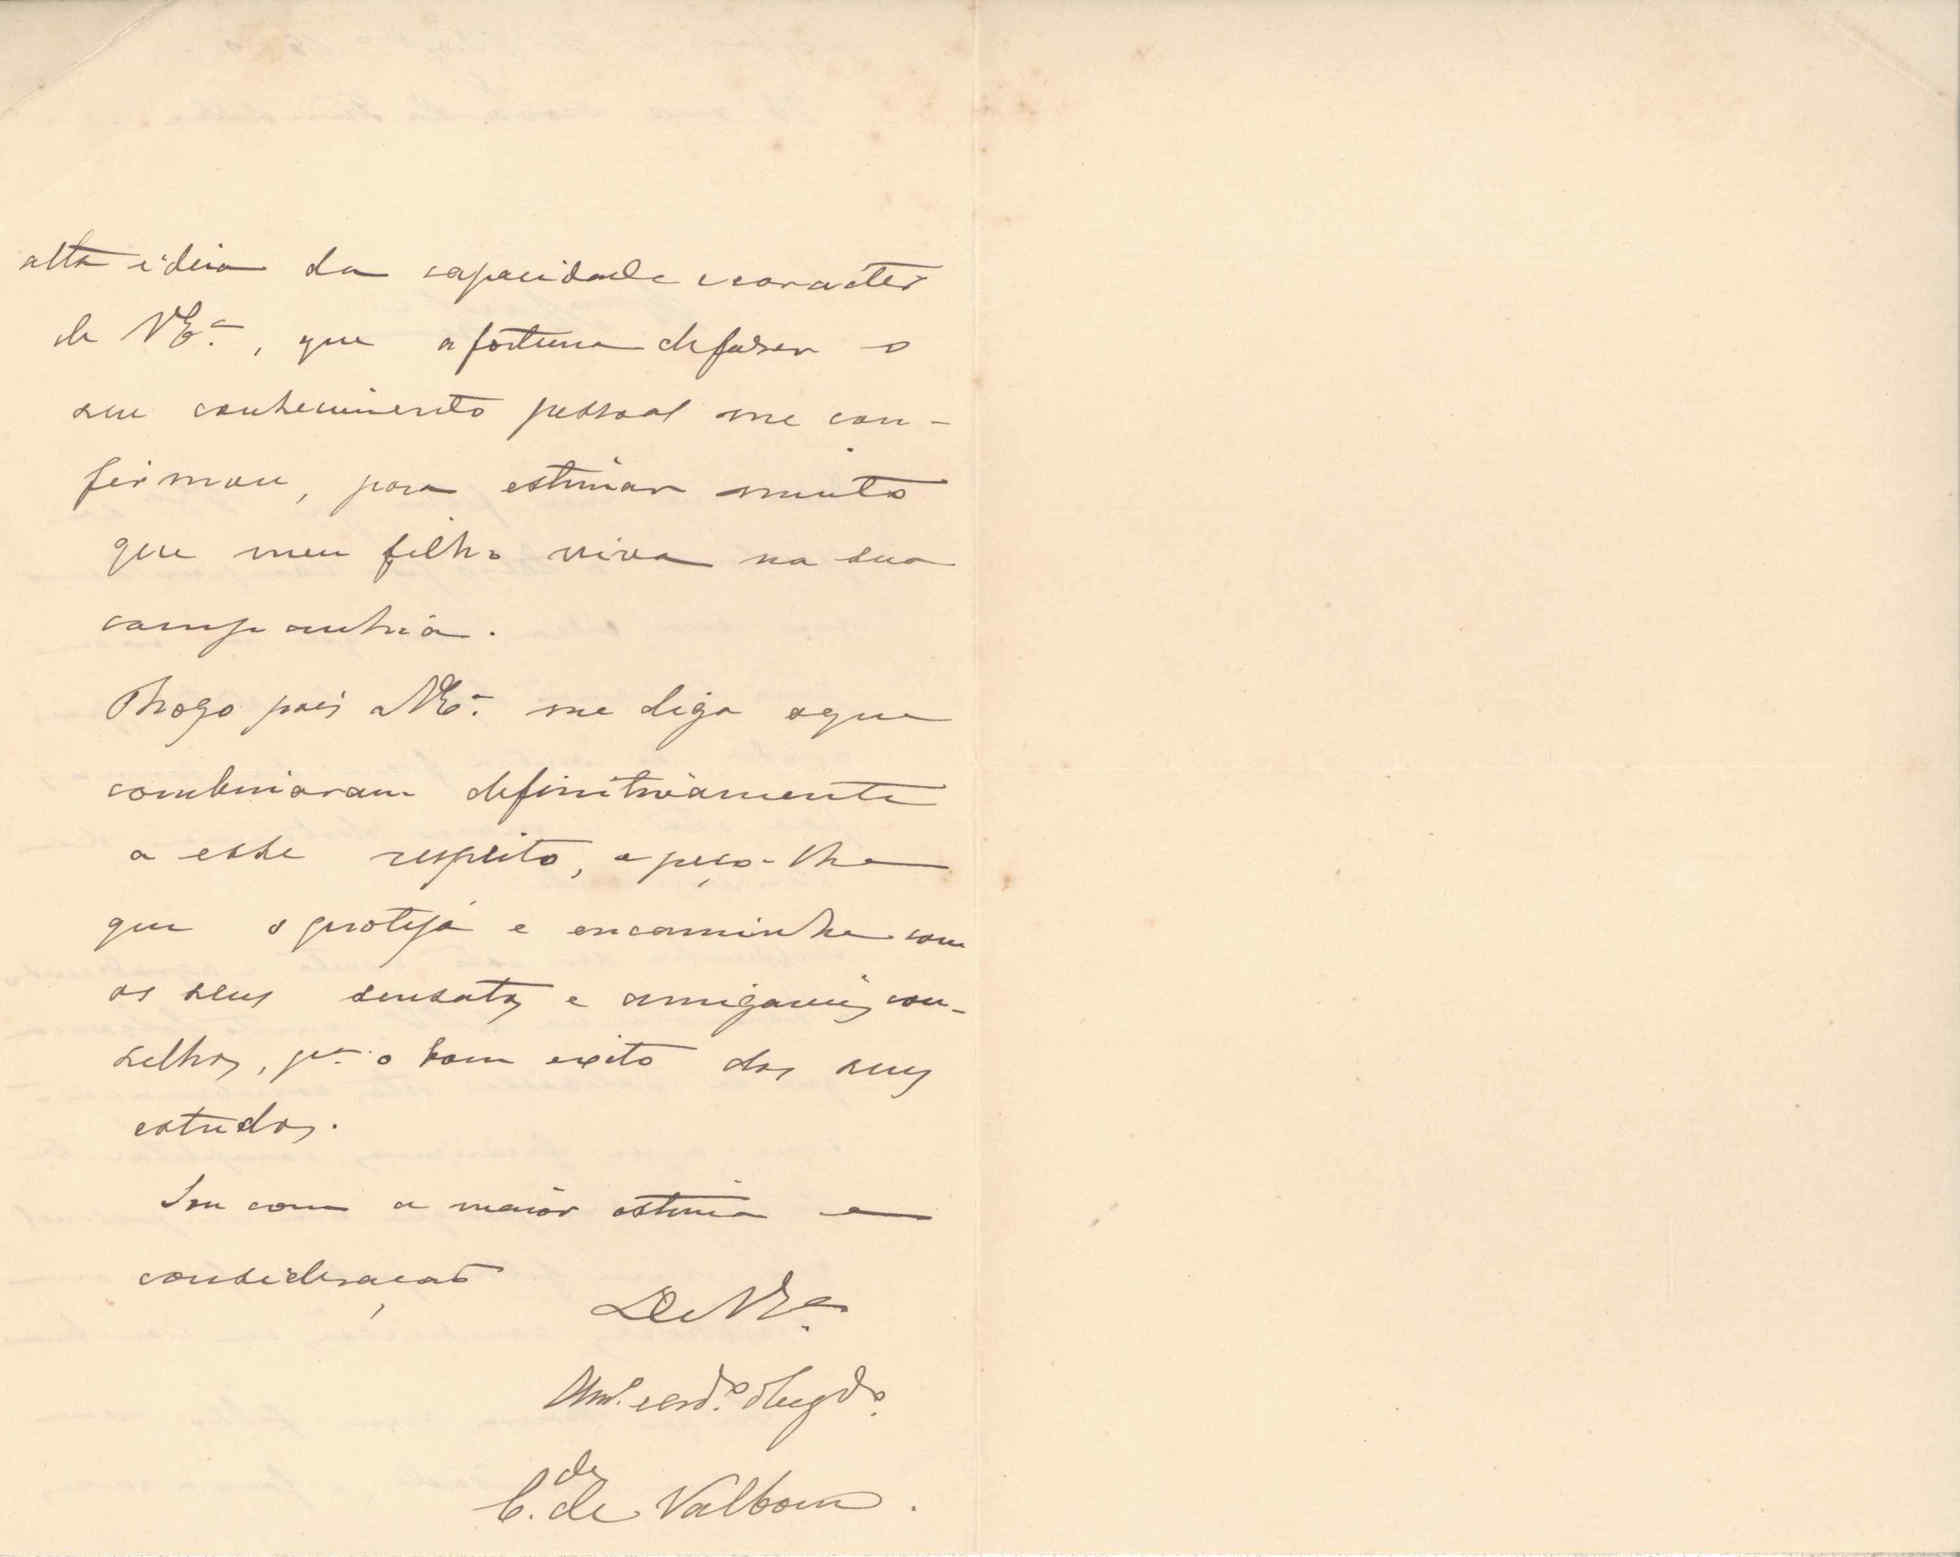 alta ideia da capacidade e caracter
de VEª., que a fortuna de fazer o
seu conhecimento pessoal me con-
firmou, para estimar muito
que meu filho viva na sua
companhia.
Rogo pois a VEª. me diga o que
combinaram definitivamente
a esse respeito, e peço-lhe
que o proteja e encaminhe com
os seus sensatos e amigaveis con-
selhos, pª. o bom exito dos seus
estudos.
Sou com a maior estima e
consideração
De VEª.
Amº. e crdº. obrgdº.
C.de de Valbom.